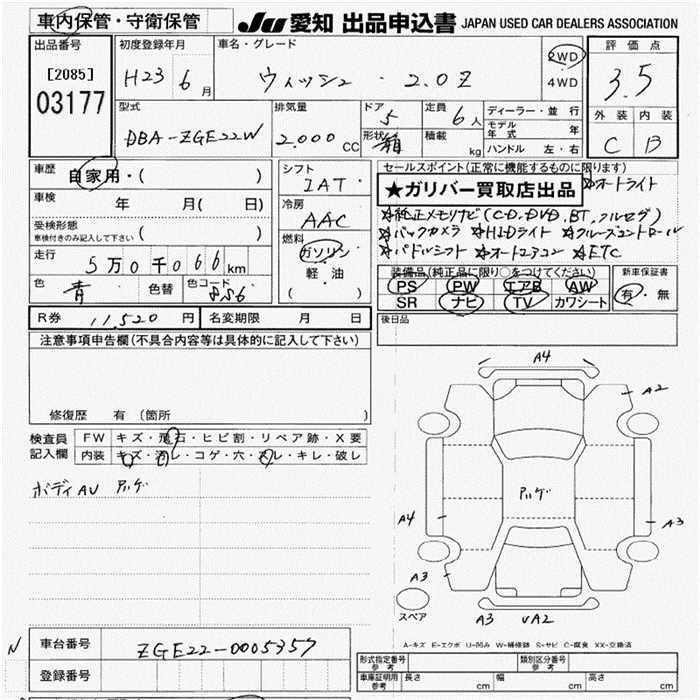 車内保管・守衛保管 JU 愛知 出品申込書 JAPAN USED CAR DEALERS ASSOCIATION
出品番号 初度登録年月 車名・グレード 2WD 評価点
[2085] H23 6月 ウィッシュ・2.0Z 4WD 3.5
03177
型式 排気量 ドア 5 定員 6人 ディーラー・並行 外装 内装
DBA-ZGE22W 2.000cc 形状 箱 積載 kg モデル年式 年 C B
ハンドル 左・右
車歴 自家用・( ) シフト セールスポイント(正常に機能するものに限ります)
IAT ★ガリバー買取店出品 ☆オートライト
車検 年 月( 日) 冷房 ☆純正メモリナビ(CD.DVD.BT.フルセグ)
受検形態 AAC ☆バックカメラ ☆HIDライト ☆クルーズコントロール
車検付きのみ記入して下さい( ) 燃料 ☆パドルシフト ☆オートエアコン ☆ETC
走行 5万0千066km ガソリン 装備品(純正品に限り○をつけてください) 新車保証書
色 青 色替 色コード 8S6 軽・油 PS PW エアB AW 有・無
( ) SR ナビ TV カワシート
R券 11,520円 名変期限 月 日 後日品
注意事項申告欄(不具合内容等は具体的に記入して下さい)
A4
A2
修復歴 有 (箇所 )
検査員 FW キズ・飛石・ヒビ割・リペア跡・X要
記入欄 内装 キズ・汚レ・コゲ・穴・スレ・キレ・破レ
ボディAU アルゲ
アルゲ
A4 A3
A3 A2
スペア A3 UA2
A-キズ E-エクボ U-凹み W-補修跡 S-サビ C-腐食 XX-交換済
N 車台番号 ZGE22-0005357
登録番号
形式指定番号 参考 類別区分番号 参考
車庫証明用 参考 長さ cm 幅 cm 高さ cm